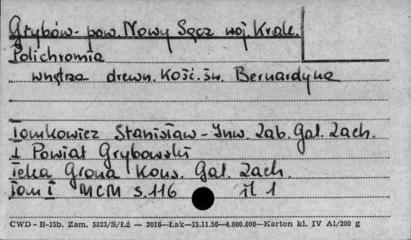 Grybów - pow. Nowy Sącz woj. Krak.
Polichromia
wnętrza drewn. Kość. św. Bernardyna
Tomkowicz Stanisław - Inw. Zab. Gal. Zach.
I Powiat Grybowski
Teka Grona Kons. Gal. Zach.
Tom I MCM s. 116 il 1
CWD - B-15b. Zam. 5323/S/Łż — 2016—Łak—15.11.56—4.000.000—Karton kl. IV A1/200 g